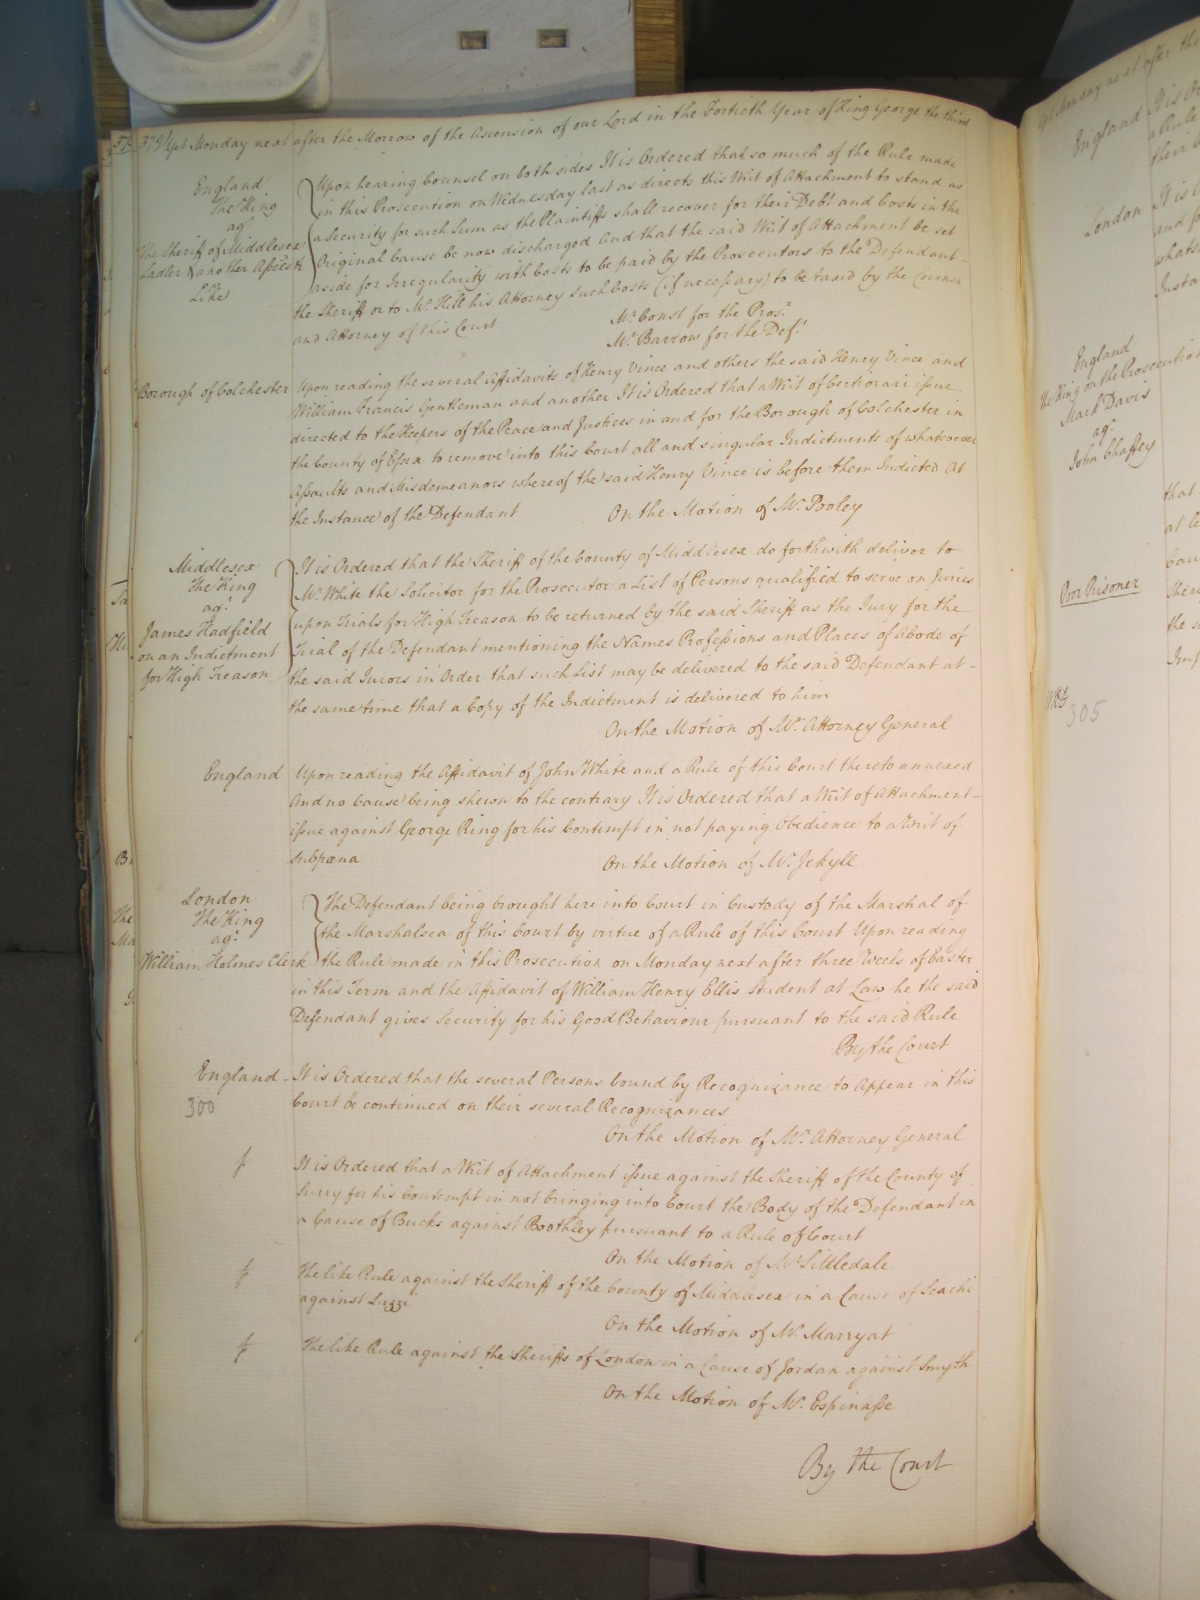 379 Upt Monday next after the Morrow of the Ascension of our Lord in the Fortieth Year of King George the third
England
The King
agt
The Sheriff of Middlesex
Ladler & another Assees
Like
Upon hearing Counsel on both sides It is Ordered that so much of the Rule made
in this Prosecution on Wednesday last as directs this Writ of Attachment to stand as
a Security for such Sum as the Plaintiffs shall recover for their Debt and Costs in the
Original Cause be now discharged And that the said Writ of Attachment be set
aside for Irregularity with Costs to be paid by the Prosecutors to the Defendant
the Sheriff or to Mr. Hill his Attorney such Costs (if necessary) to be taxed by the Coroner
and Attorney of this Court
Mr. Const for the Prosr.
Mr. Barrow for the Deft.
Borough of Colchester
Upon reading the several Affidavits of Henry Vince and others the said Henry Vince and
William Francis Gentleman and another It is Ordered that a Writ of Certiorari issue
directed to the Keepers of the Peace and Justices in and for the Borough of Colchester in
the County of Essex to remove into this Court all and singular Indictments of whatsoever
Assaults and Misdemeanors whereof the said Henry Vince is before them Indicted At
the Instance of the Defendant
On the Motion of Mr. Pooley
Middlesex
The King
agt.
James Hadfield
on an Indictment
for High Treason
It is Ordered that the Sheriff of the County of Middlesex do forthwith deliver to
Mr. White the Solicitor for the Prosecutor a List of Persons qualified to serve on Juries
upon Trials for High Treason to be returned by the said Sheriff as the Jury for the
Trial of the Defendant mentioning the Names Professions and Places of Abode of
the said Jurors in Order that such List may be delivered to the said Defendant at
the same time that a Copy of the Indictment is delivered to him
On the Motion of Mr. Attorney General
England
Upon reading the Affidavit of John White and a Rule of this Court thereto annexed
And no Cause being shewn to the contrary It is Ordered that a Writ of Attachment
issue against George Ring for his Contempt in not paying Obedience to a Writ of
Subpœna
On the Motion of Mr. Jekyll
London
The King
agt.
William Holmes Clerk
The Defendant being brought here into Court in Custody of the Marshal of
the Marshalsea of this Court by virtue of a Rule of this Court Upon reading
the Rule made in this Prosecution on Monday next after three Weeks of Easter
in this Term and the Affidavit of William Henry Ellis Student at Law he the said
Defendant gives Security for his Good Behaviour pursuant to the said Rule
By the Court
England
300
It is Ordered that the several Persons bound by Recognizance to Appear in this
Court be continued on their several Recognizances
On the Motion of Mr. Attorney General
It is Ordered that a Writ of Attachment issue against the Sheriff of the County of
Surry for his Contempt in not bringing into Court the Body of the Defendant in
a Cause of Bucks against Boothley pursuant to a Rule of Court
On the Motion of Mr. Littledale
The like Rule against the Sheriff of the County of Middlesex in a Cause of Scachi
against Luzzi
On the Motion of Mr. Marryat
The like Rule against the Sheriffs of London in a Cause of Jordan against Smyth
On the Motion of Mr. Espinasse
By the Court
Upt Monday next after the
England
London
England
The King on the Prosecution
Mark Davis
agt.
John Chaffey
Poor Prisoner
305